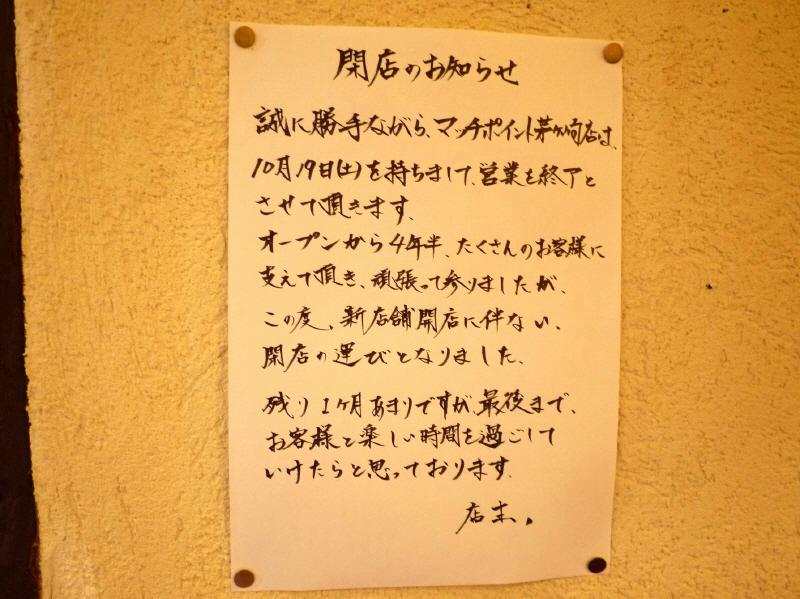 閉店のお知らせ
誠に勝手ながら、マッチポイント茅ヶ崎店は、
10月19日(土)を持ちまして、営業を終了と
させて頂きます。
オープンから4年半、たくさんのお客様に
支えて頂き、頑張って参りましたが、
この度、新店舗開店に伴ない、
閉店の運びとなりました。
残り1ヶ月あまりですが、最後まで、
お客様と楽しい時間を過ごして
いけたらと思っております。
店主。